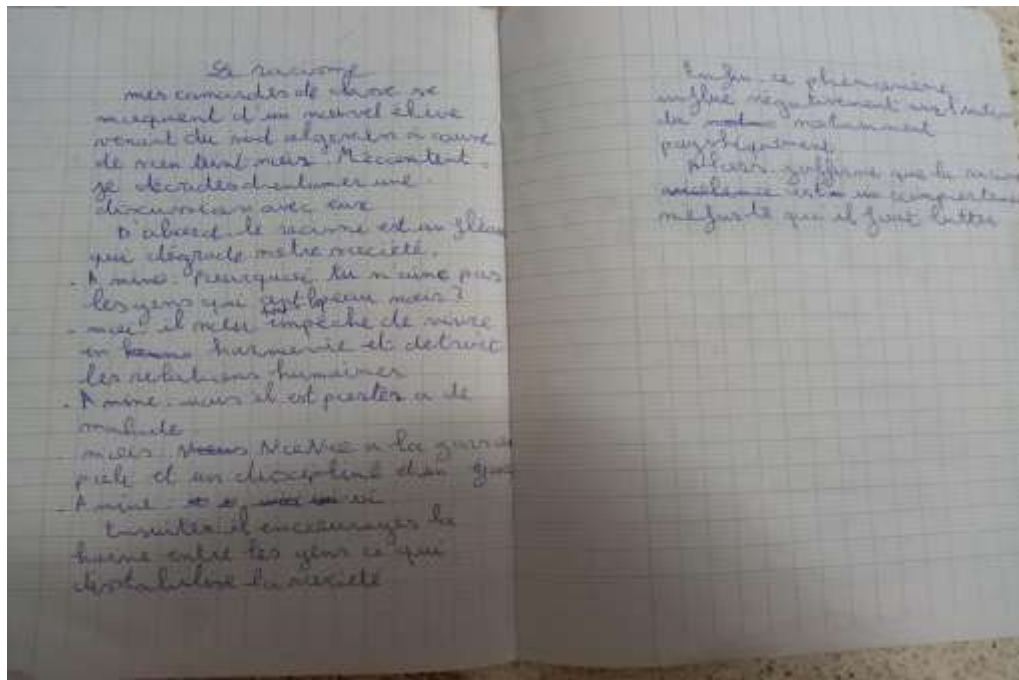 Le racisme
mes camardes de classe se
mequent d'un nouvel élève
venant du sud algerien a cause
de son teint noir. Mécontent,
je décides d'entamer une
discussion avec eux
D'abord le racisme est un fléau
qui dégrade notre société.
- Amine. Pourquoi tu n'aime pas
les gens qui ont peau noir?
- moi il nous empêche de vivre
en harmonie et detruit
les relations humaines
- Amine. mais il est porter a de
malade
mois. Non Non a la
et un discipliné d'un
- Amine. oi
Ensuites il encourages la
haine entre les gens ce qui
destabilise la société
Enfin ce phénomène
influe négativement sur
la notamment
psychiquement.
Alors j'affirme que le
est un
nefaste qui il faut lutter